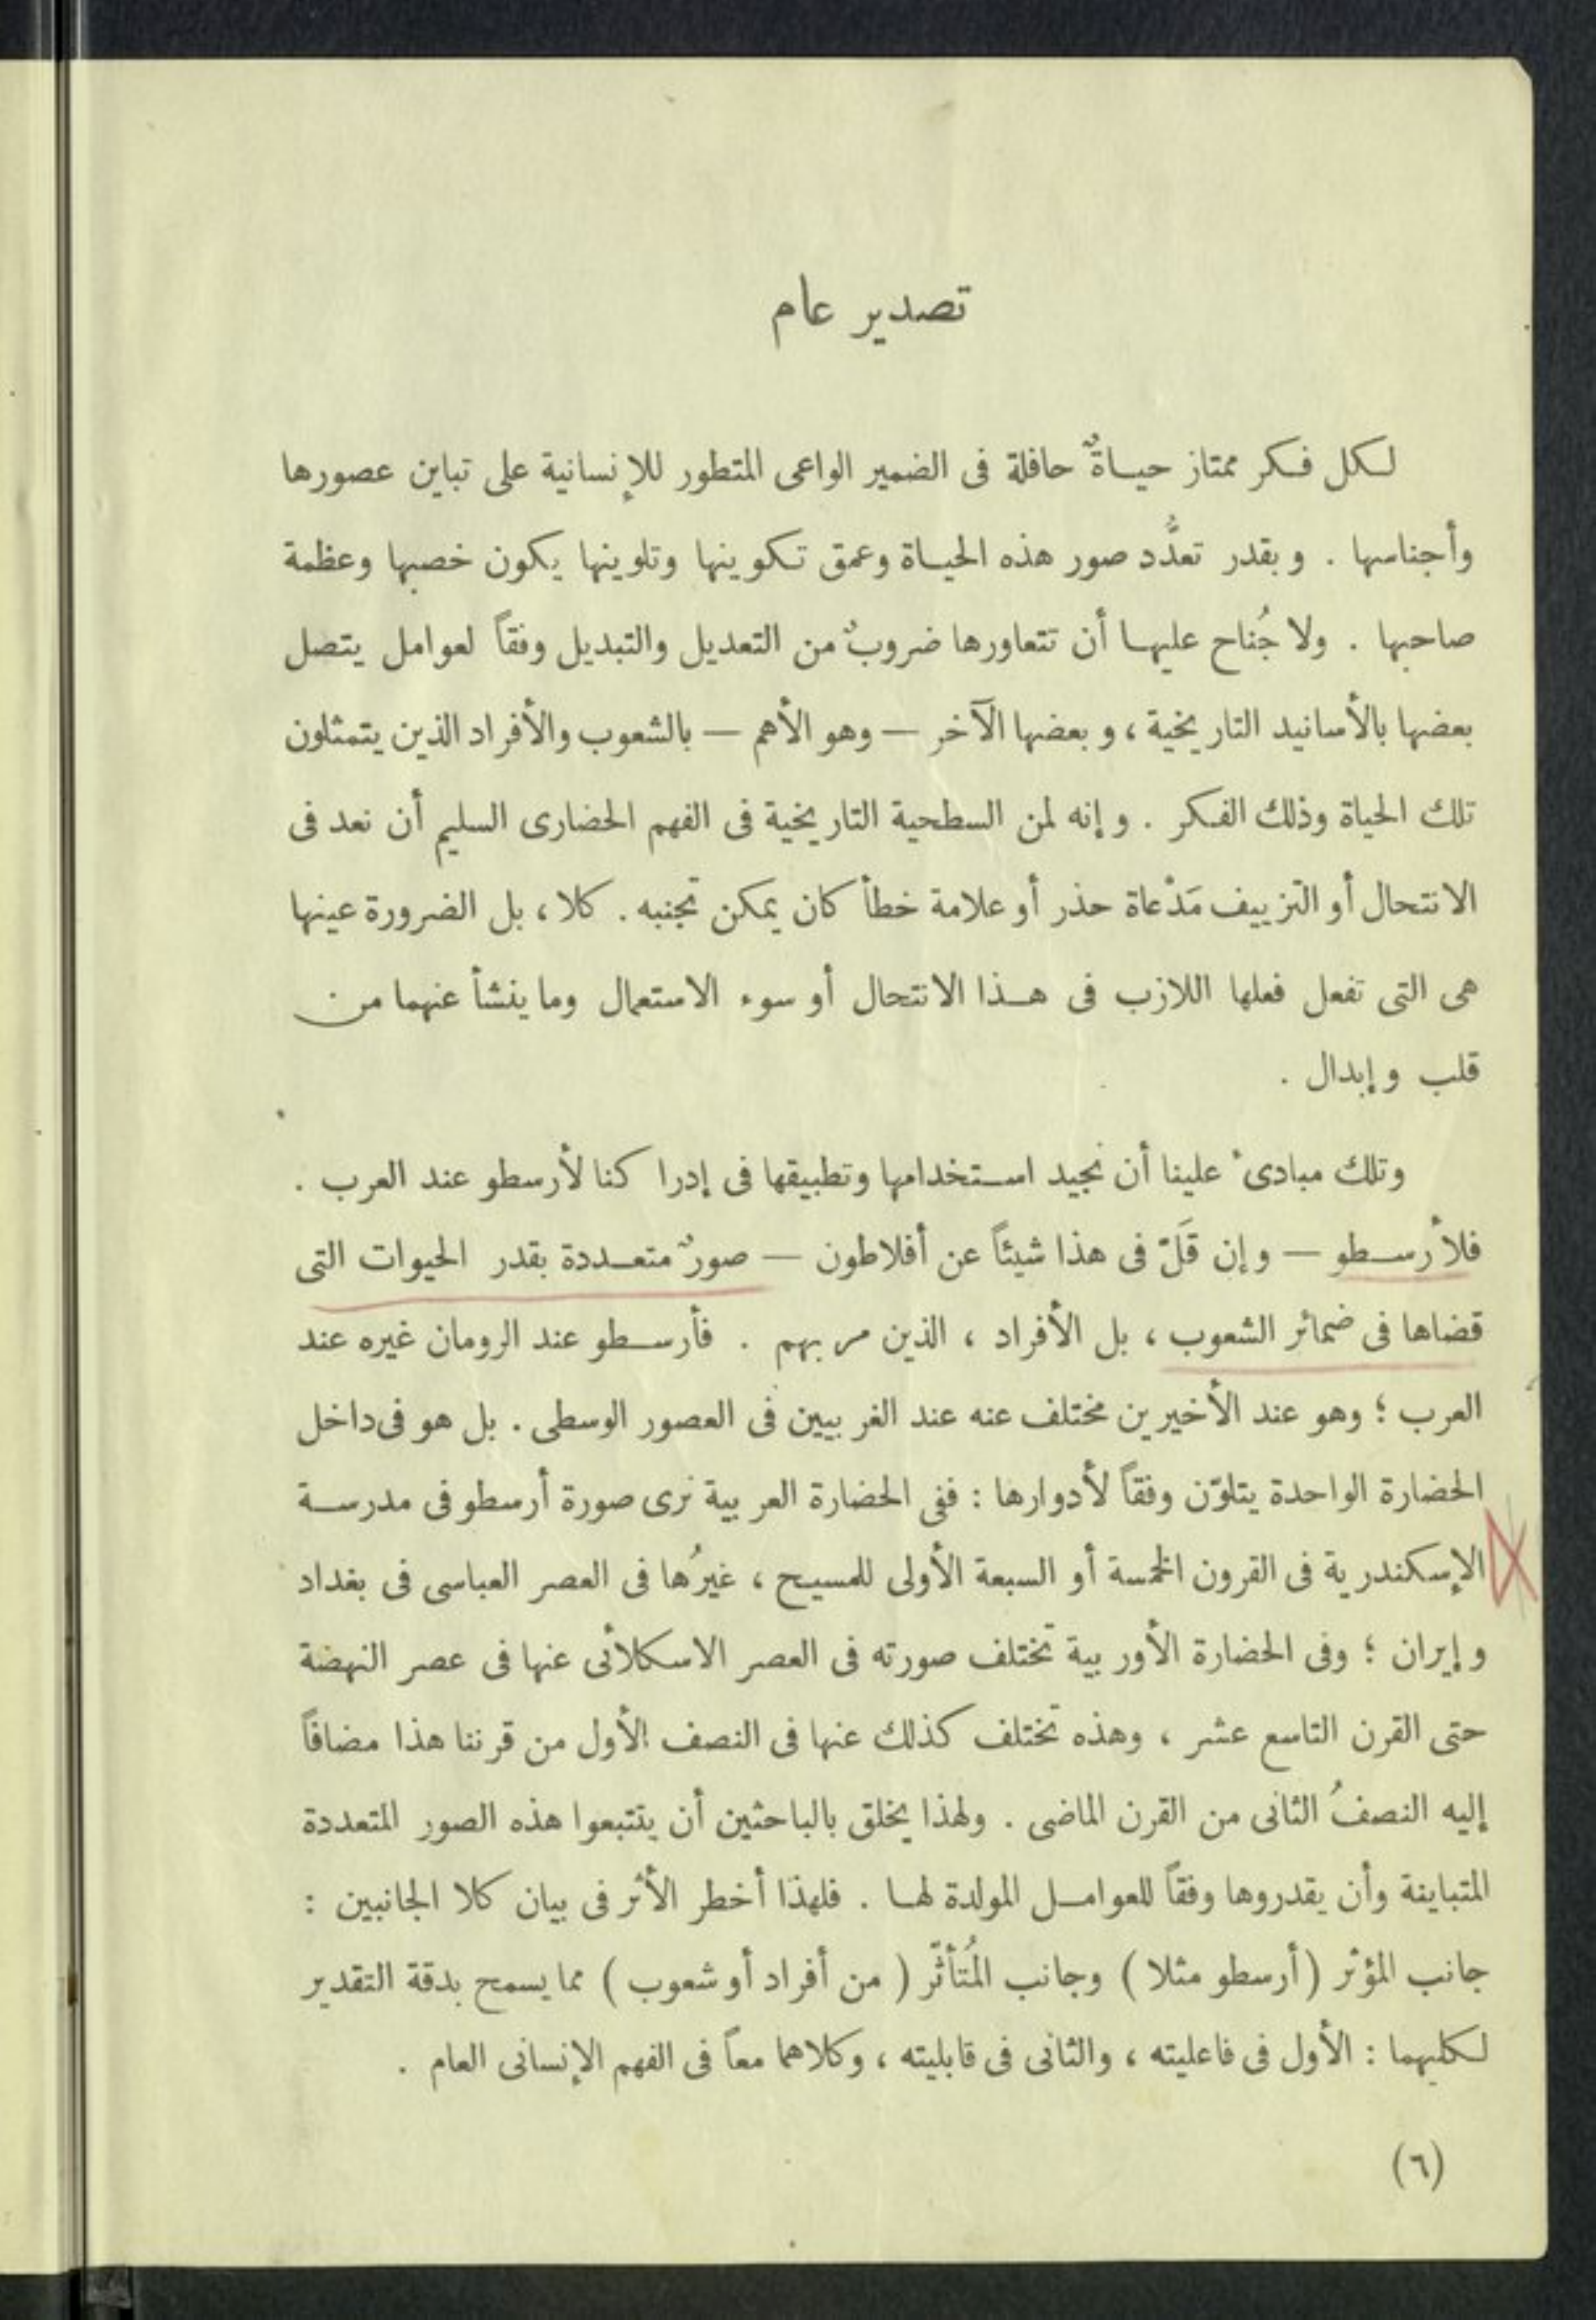 تصدير عام
لكل فكر ممتاز حياةٌ حافلة فى الضمير الواعى المتطور للإنسانية على تباين عصورها
وأجناسها . وبقدر تعدُّد صور هذه الحياة وعمق تكوينها وتلوينها يكون خصبها وعظمة
صاحبها . ولا جُناح عليها أن تتعاورها ضروبٌ من التعديل والتبديل وفقاً لعوامل يتصل
بعضها بالأسانيد التاريخية ، وبعضها الآخر — وهو الأهم — بالشعوب والأفراد الذين يتمثلون
تلك الحياة وذلك الفكر . وإنه لمن السطحية التاريخية فى الفهم الحضارى السليم أن نعد فى
الانتحال أو التزييف مَدْعاة حذر أو علامة خطأ كان يمكن تجنبه . كلا ، بل الضرورة عينها
هى التى تفعل فعلها اللازب فى هذا الانتحال أو سوء الاستعمال وما ينشأ عنهما من
قلب وإبدال .
وتلك مبادئ علينا أن نجيد استخدامها وتطبيقها فى إدراكنا لأرسطو عند العرب .
فلأرسطو — وإن قَلّ فى هذا شيئاً عن أفلاطون — صورٌ متعددة بقدر الحيوات التى
قضاها فى ضمائر الشعوب ، بل الأفراد ، الذين مر بهم . فأرسطو عند الرومان غيره عند
العرب ؛ وهو عند الأخيرين مختلف عنه عند الغربيين فى العصور الوسطى . بل هو فى داخل
الحضارة الواحدة يتلوّن وفقاً لأدوارها : ففى الحضارة العربية نرى صورة أرسطو فى مدرسة
الإسكندرية فى القرون الخمسة أو السبعة الأولى للمسيح ، غيرُها فى العصر العباسى فى بغداد
وإيران ؛ وفى الحضارة الأوربية تختلف صورته فى العصر الاسكلائى عنها فى عصر النهضة
حتى القرن التاسع عشر ، وهذه تختلف كذلك عنها فى النصف الأول من قرننا هذا مضافاً
إليه النصفُ الثانى من القرن الماضى . ولهذا يخلق بالباحثين أن يتتبعوا هذه الصور المتعددة
المتباينة وأن يقدروها وفقاً للعوامل المولدة لها . فلهذا أخطر الأثر فى بيان كلا الجانبين :
جانب المؤثر ( أرسطو مثلا ) وجانب المُتأثّر ( من أفراد أو شعوب ) مما يسمح بدقة التقدير
لكليهما : الأول فى فاعليته ، والثانى فى قابليته ، وكلاهما معاً فى الفهم الإنسانى العام .
(٦)